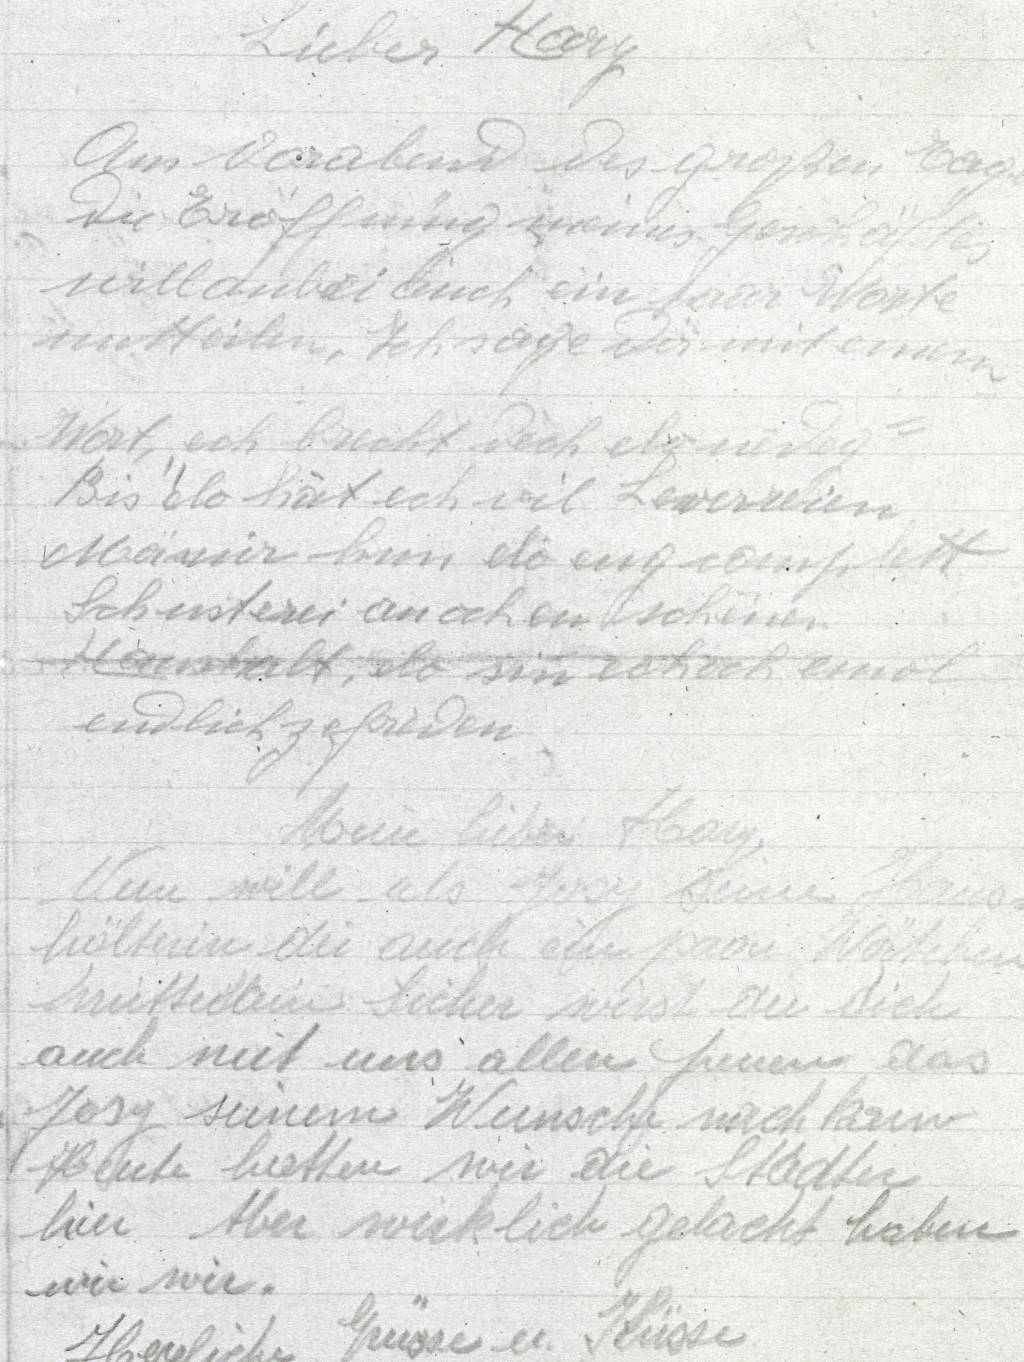 Lieber Hary
Am Vorabend des großen Tag
die Eröffnung meines Geschäftes
will anbei Euch ein paar Worte
mitteilen, Ich sage Dir mit einem
Wort, ech brecht dech elo
Bis elo hät ech vil
Mä mir hun elo eng complett
Schusterei an och en schéinen
Haushalt, elo sin ech och emol
endlich zefrieden
Mein lieber Hary,
Nun will als Josy seine Haus-
hälterin dir auch ein paar Wörtchen
mitteilen sicher wirst du dich
auch mit uns allen freuen das
Josy seinem Wunsche nach kam
Heute hatten wir die Städter
hier Aber wirklich gelacht haben
wir wir.
Herzliche Grüsse u. Küsse